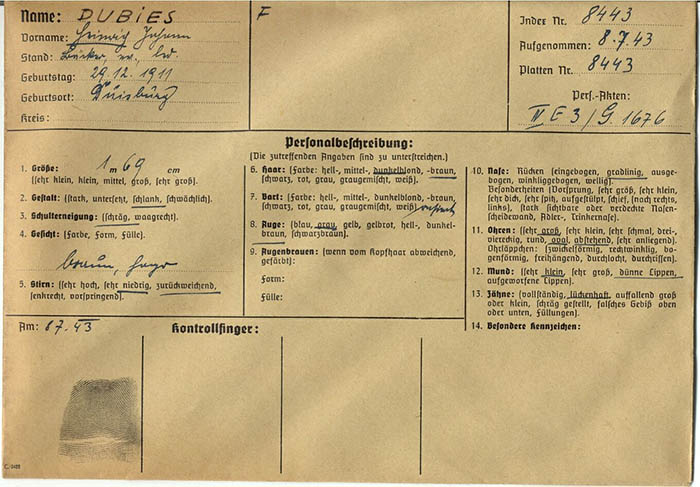 Name: DUBIES
Vorname: Heinrich Johann
Stand: Bäcker,
Geburtstag: 29.12.1911
Geburtsort: Duisburg
Kreis:
F
Index Nr. 8443
Aufgenommen: 8.7.43
Platten Nr. 8443
Pers.-Akten:
II E 3/G. 1676
Personalbeschreibung:
(Die zutreffenden Angaben sind zu unterstreichen.)
1. Größe: 1 m 69 cm
(sehr klein, klein, mittel, groß, sehr groß).
2. Gestalt: (stark, untersetzt, schlank, schwächlich).
3. Schulterneigung: (schräg, waagrecht).
4. Gesicht: (Farbe, Form, Fülle).
braun,
5. Stirn: (sehr hoch, sehr niedrig, zurückweichend,
senkrecht, vorspringend).
6. Haar: (Farbe: hell-, mittel-, dunkelblond, -braun,
schwarz, rot, grau, graugemischt, weiß).
7. Bart: (Farbe: hell-, mittel-, dunkelblond, -braun,
schwarz, rot, grau, graugemischt, weiß) rasiert
8. Auge: (blau, grau, gelb, gelbrot, hell-, dunkel-
braun, schwarzbraun).
9. Augenbrauen: (wenn vom Kopfhaar abweichend,
gefärbt):
Form:
Fülle:
10. Nase: Rücken (eingebogen, gradlinig, ausge-
bogen, winkliggebogen, wellig).
Besonderheiten (Vorsprung, sehr groß, sehr klein,
sehr dick, sehr spitz, aufgestülpt, schief, (nach rechts,
links), stark sichtbare oder verdeckte Nasen-
scheidewand, Adler-, Trinkernase).
11. Ohren: (sehr groß, sehr klein, sehr schmal, drei-,
viereckig, rund, oval, abstehend, sehr anliegend).
Ohrläppchen: (zwickelförmig, rechtwinklig, bo-
genförmig, freihängend, durchlocht, durchrissen).
12. Mund: (sehr klein, sehr groß, dünne Lippen,
aufgeworfene Lippen).
13. Zähne: (vollständig, lückenhaft, auffallend groß
oder klein, schräg gestellt, falsches Gebiß oben
oder unten, Füllungen).
14. Besondere Kennzeichen:
Am: 8.7.43
Kontrollfinger: